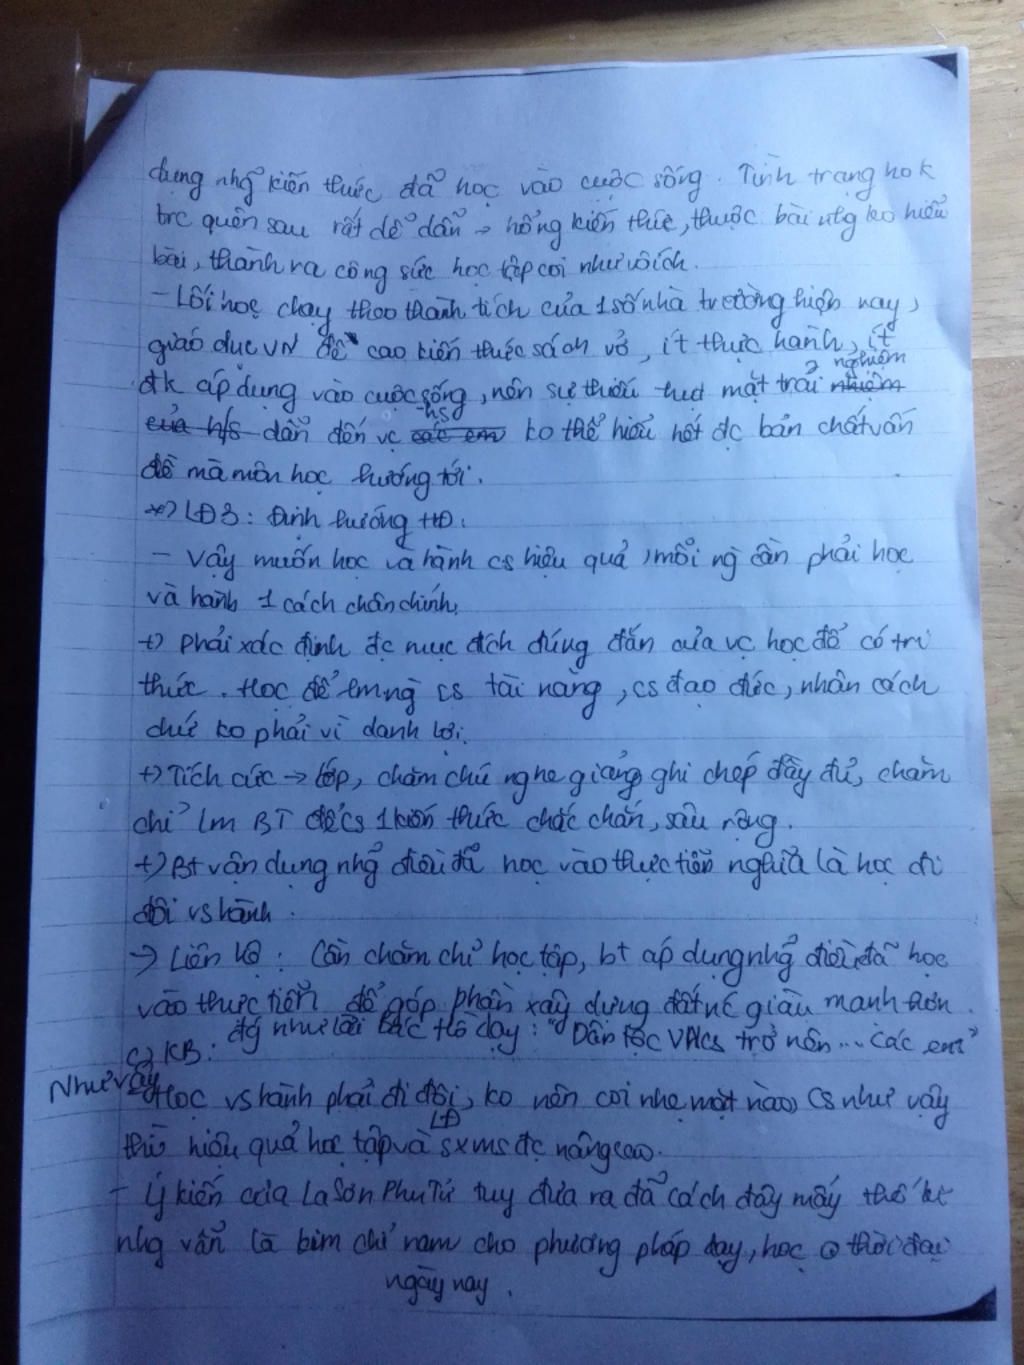 dụng nhg̃ kiến thức đã học vào cuộc sống. Tình trạng hok
trc quên sau rất dễ dẫn → hổng kiến thức, thuộc bài nhg ko hiểu
bài, thành ra công sức học tập coi như vô ích.
- Lối học chạy theo thành tích của 1 số nhà trường hiện nay,
giáo dục VN đề cao kiến thức sách vở, ít thực hành, ít
đk áp dụng vào cuộc sống, nên sự thiếu trải nghiệm
dẫn đến vc hs ko thể hiểu hết đc bản chất vấn
đề mà môn học hướng tới.
*) LĐ3: Định hướng HĐ.
- Vậy muốn học và hành cs hiệu quả, mỗi ng cần phải học
và hành 1 cách chân chính.
+) Phải xác định đc mục đích đúng đắn của vc học để có tri
thức. Học để lm ng cs tài năng, cs đạo đức, nhân cách
chứ ko phải vì danh lợi.
+) Tích cức → lớp, chăm chú nghe giảng ghi chép đầy đủ, chăm
chỉ lm BT để cs 1 kiến thức chắc chắn, sâu rộng.
+) Bt vận dụng nhg̃ điều đã học vào thực tiễn nghĩa là học đi
đôi vs hành.
→ Liên hệ: Cần chăm chỉ học tập, bt áp dụng nhg̃ điều đã học
vào thực tiễn để góp phần xây dựng đất nc giàu mạnh hơn.
như lời Bác Hồ dạy: "Dân tộc VN cs trở nên... các em"
c) KB:
Như vậy Học vs hành phải đi đôi, ko nên coi nhẹ mặt nào, Cs như vậy
thì hiệu quả học tập và LĐ sx ms đc nâng cao.
- Ý kiến của La Sơn Phu Tử tuy đưa ra đã cách đây mấy thế kỉ
nhg vẫn là kim chỉ nam cho phương pháp dạy, học thời đại
ngày nay.